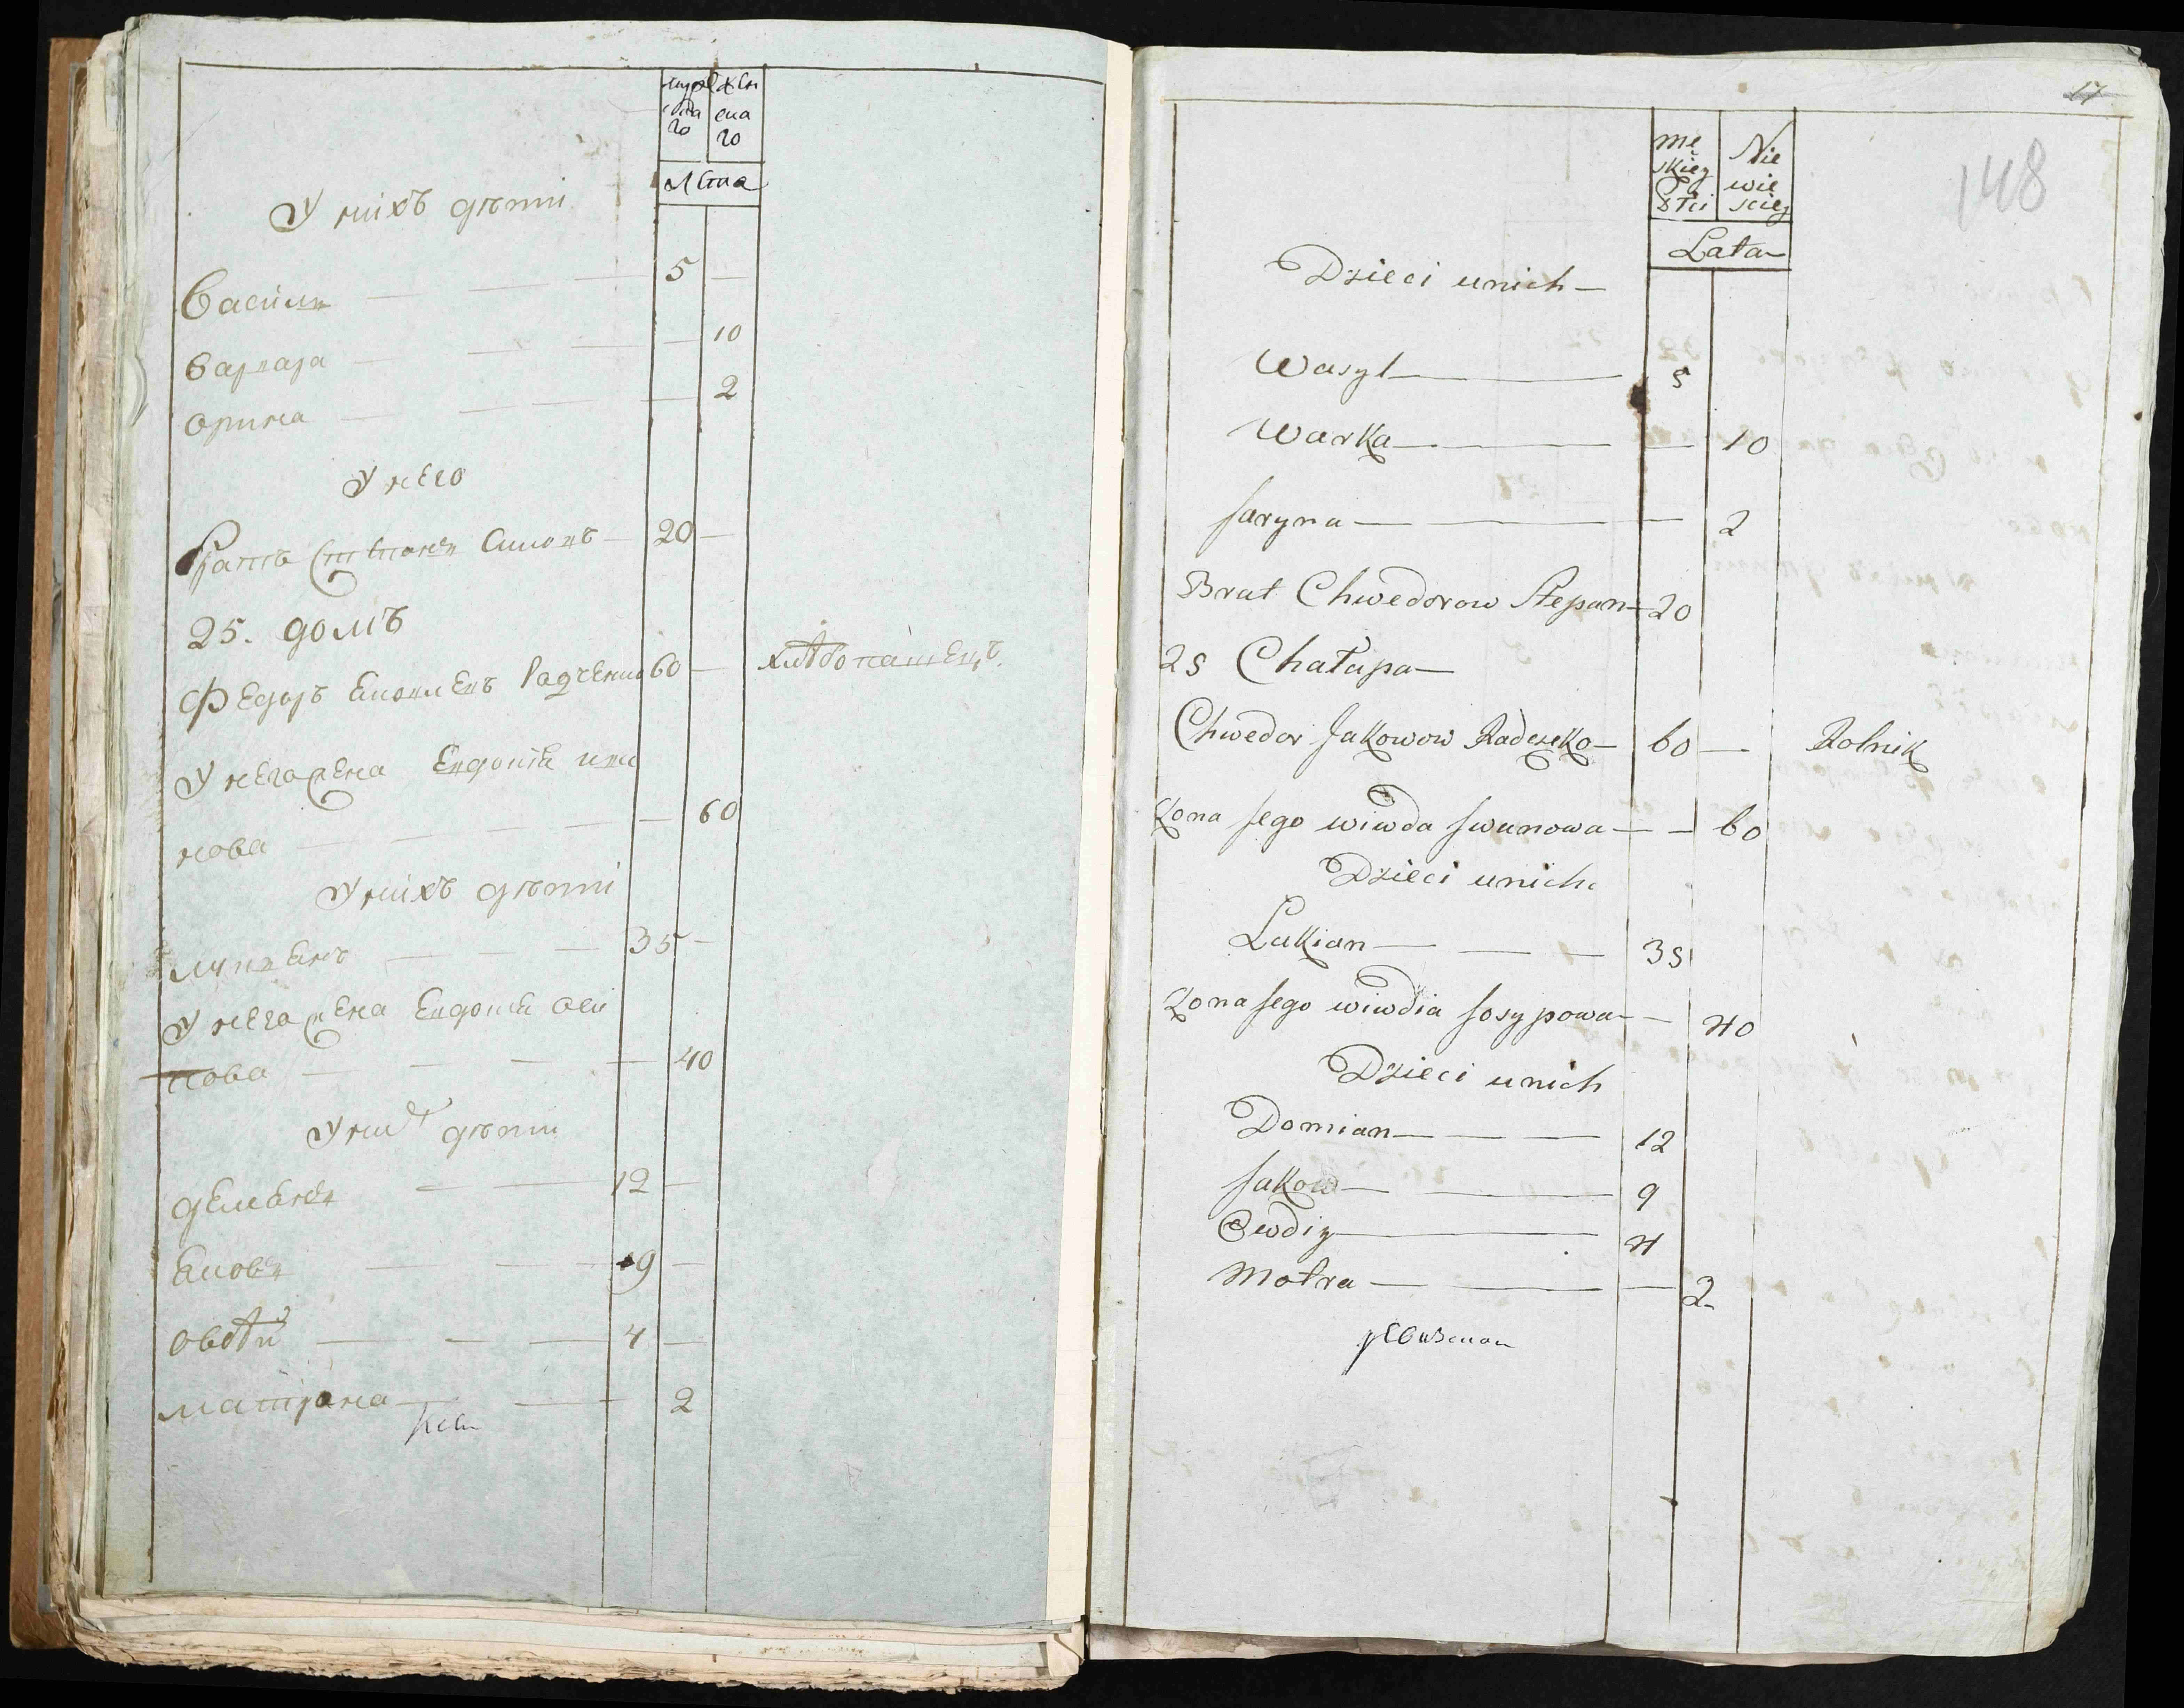 мужеска го
женска го
Лета
У нихъ дѣти
Василь — — — 5 —
Варвара — — — — 10
Орина — — — — 2
У него
братъ Степанъ — 20 —
25. домъ
Федоръ Яковлевъ Радченко 60 — хлѣбопашецъ
У него жена Евдокія Ива
нова — — — — 60
У нихъ дѣти
Лукьянъ — — 35 —
У него жена Евдокія Оси
пова — — — — 40
У них дѣти
Демьянъ — — 12 —
Яковъ — — 9 —
Овдѣй — — — 4 —
Матрона — — — 2
17
148
Mę skieg Płci
Nie wie scieg
Lata
Dzieci unich
Wasyl — — 5
Warka — — — 10
Jaryna — — — 2
Brat Chwedorow Stepan — 20
25 Chałupa
Chwedor Jakowow Radczeko — 60 — Rolnik
Zona Jego wiwda Jwanowa — — 60
Dzieci unich
Lukian — — — 35
Zona Jego wiwdia Josypowa — — 40
Dzieci unich
Domian — — — 12
Jakow — — 9
Owdiy — 4
Motra — — — 2